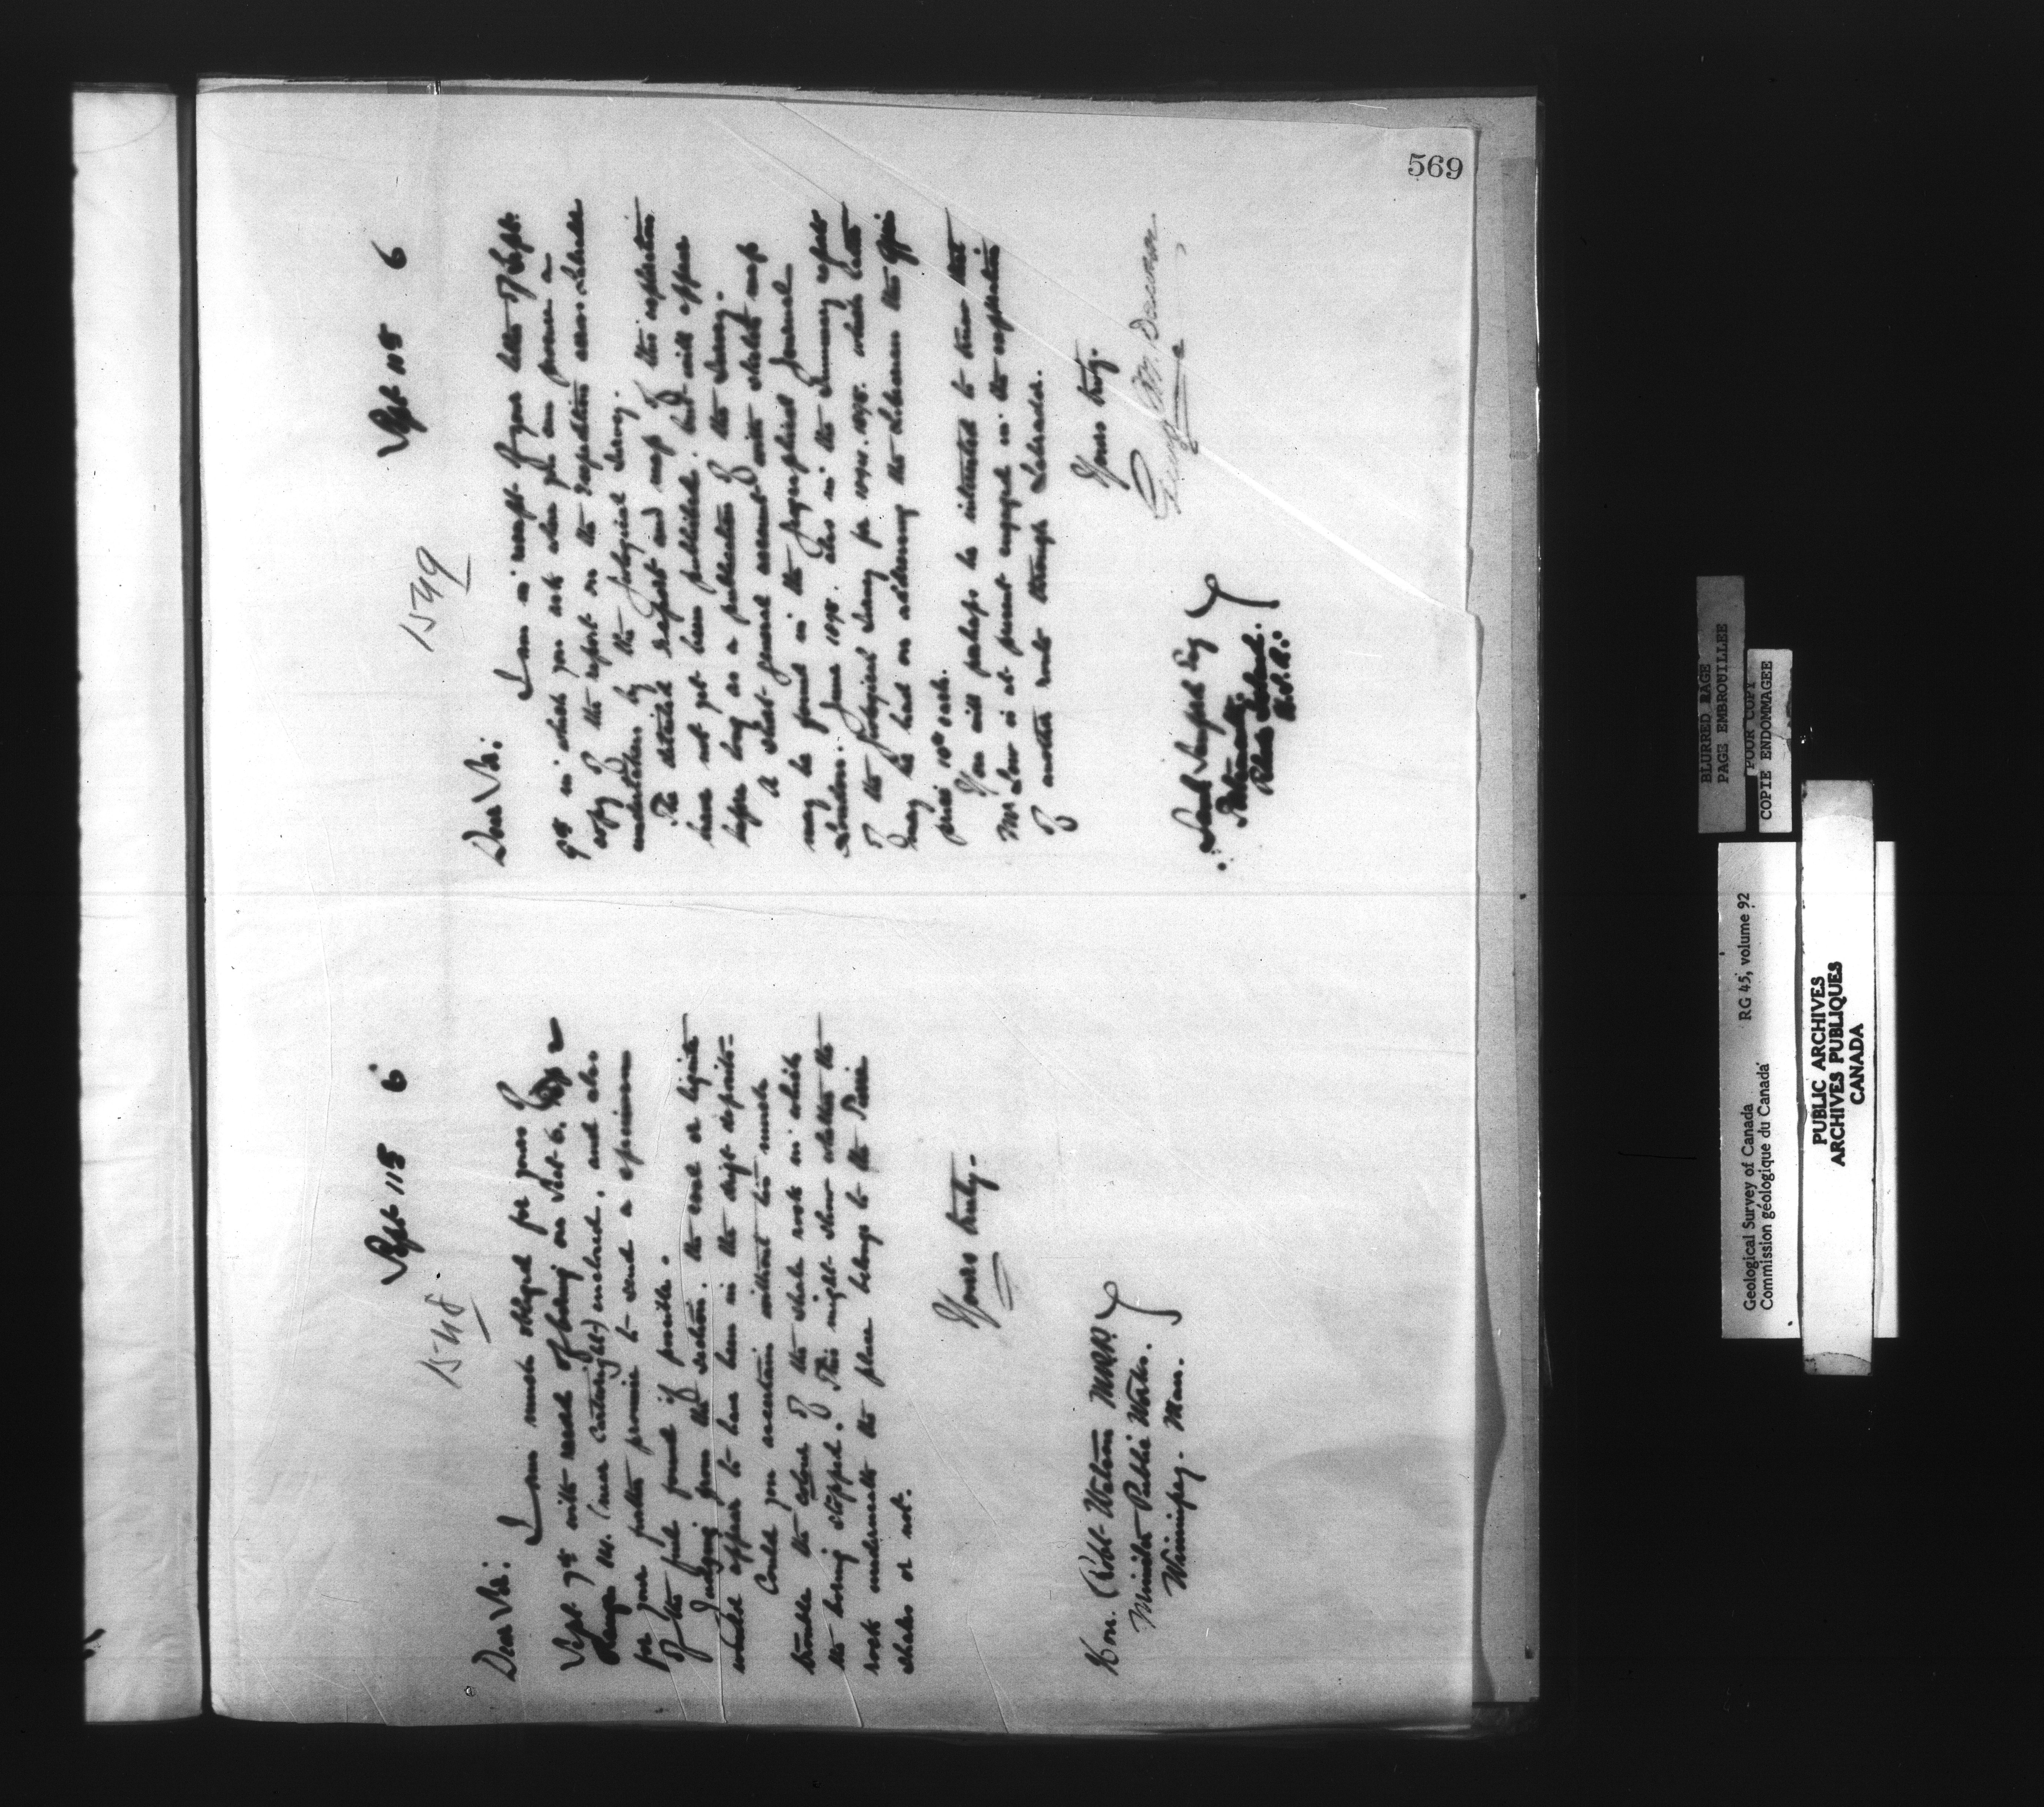 569
1548
Sept 11th 6
Dear Sir:
I am much obliged for yours of
Sept 7th with record of boring on Sect. 6.
Range 14. (near Cartwright) enclosed. and also
for your further promise to send a specimen
of the fuel found if possible.
Judging from the section. the coal or lignite
would appear to have been in the drift deposits.
Could you ascertain without too much
trouble the colour of the shale rock in which
the boring stopped. This might show whether the
rock underneath the place belongs to the Pierre
shales or not.
Yours truly.
Hon. Robt Watson M.P.P.
Minister Public Works.
Winnipeg. Man.
1549
Sept 11th 6
Dear Sir:
I am in receipt of your letter of Sept.
9th in which you ask when you can procure a
copy of the report on the Expedition across Labrador
undertaken by the Geological Survey.
The detailed Report and map of this exploration
have not yet been published. but will appear
before long as a publication of the Survey.
A short general account with sketch map
may be found in the Geographical Journal
London. June 1895. Also in the Summary report
of the Geological Survey for 1894. 1895. which latter
may be had on addressing the Librarian this Office
price 10cts each.
You will perhaps be interested to know that
Mr Low is at present engaged in the exploration
of another route through Labrador.
Yours truly.
George M. Dawson
Esq
Rhode Island.
U.S.A.
BLURRED PAGE
PAGE EMBROUILLEE
POOR COPY
COPIE ENDOMMAGEE
Geological Survey of Canada RG 45, volume 92
Commission géologique du Canada
PUBLIC ARCHIVES
ARCHIVES PUBLIQUES
CANADA